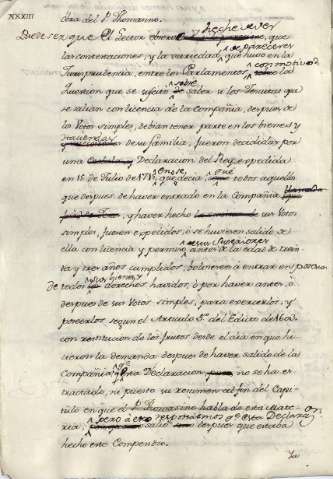 XXXIII
obra del P. Thomasino.
Debe ser que el Lector eche de ver, que
las contextaciones, y la variedad de pareceres que huvo en la
Jurisprudencia, entre los Parlamentos con motivo de la
question que se ofreció sobre saber, si los Jesuitas que
se salian con licencia de la Compañia, despues de
los Votos simples, debian tener parte en los bienes y
de su familia, fueron decididas por
una Declaracion del Rey expedida
en 16 de Julio de 1715, en que se decia: que todos aquellos
que despues de haver entrado en la Compañia
y haver hecho los Votos
simples, fueren expelidos, ó se huvieren salido de
ella con licencia y permiso de sus Superiores antes de la edad de trein-
ta y tres años cumplidos, bolviesen á entrar en posesion
de todos sus bienes, y derechos havidos, ó por haver antes, ó
despues de sus Votos simples, para exercerlos, y
poseerlos segun el Articulo 5.º del Edicto de
con restitucion de los frutos desde el dia en que hi-
cieron la demanda despues de haver salido de la
Compañia. Esta Declaracion no se ha ex-
tractado, ni puesto su resumen al fin del Capi-
tulo en que el P. Thomasino habla de esta mate-
ria; pero á esto respondemos q.e esta Declaracion
salió despues que estaba
hecho este Compendio.
La